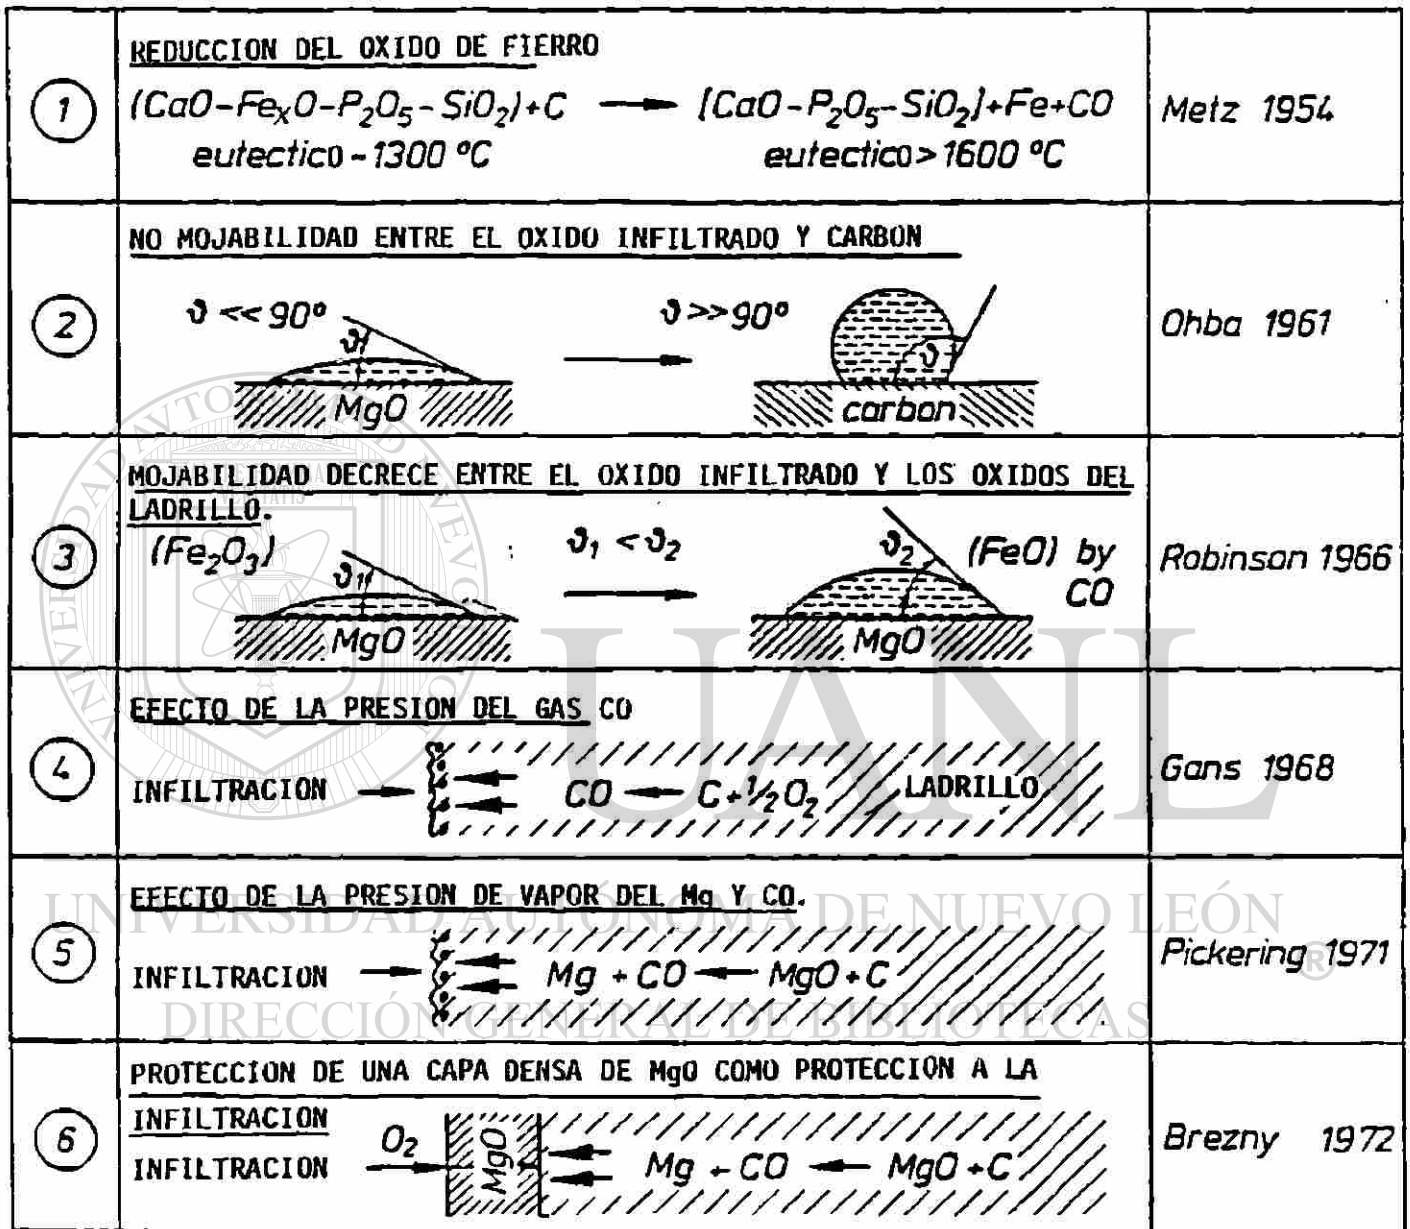 1
REDUCCION DEL OXIDO DE FIERRO
(CaO-FeₓO-P₂O₅-SiO₂)+C → [CaO-P₂O₅-SiO₂]+Fe+CO
eutectico ~ 1300 ºC eutectico > 1600 ºC
Metz 1954
2
NO MOJABILIDAD ENTRE EL OXIDO INFILTRADO Y CARBON
ϑ << 90º ϑ >> 90º
ϑ ϑ
MgO carbon
Ohba 1961
3
MOJABILIDAD DECRECE ENTRE EL OXIDO INFILTRADO Y LOS OXIDOS DEL
LADRILLO.
(Fe₂O₃) ϑ₁ < ϑ₂ (FeO) by
CO
ϑ₁ ϑ₂
MgO MgO
Robinson 1966
4
EFECTO DE LA PRESION DEL GAS CO
INFILTRACION → CO ← C+½O₂ LADRILLO
Gans 1968
5
EFECTO DE LA PRESION DE VAPOR DEL Mg Y CO.
INFILTRACION → Mg + CO ← MgO+C
Pickering 1971
6
PROTECCION DE UNA CAPA DENSA DE MgO COMO PROTECCION A LA
INFILTRACION
INFILTRACION O₂ → MgO Mg + CO ← MgO+C
Brezny 1972
UANL
UNIVERSIDAD AUTÓNOMA DE NUEVO LEÓN
®
DIRECCIÓN GENERAL DE BIBLIOTECAS